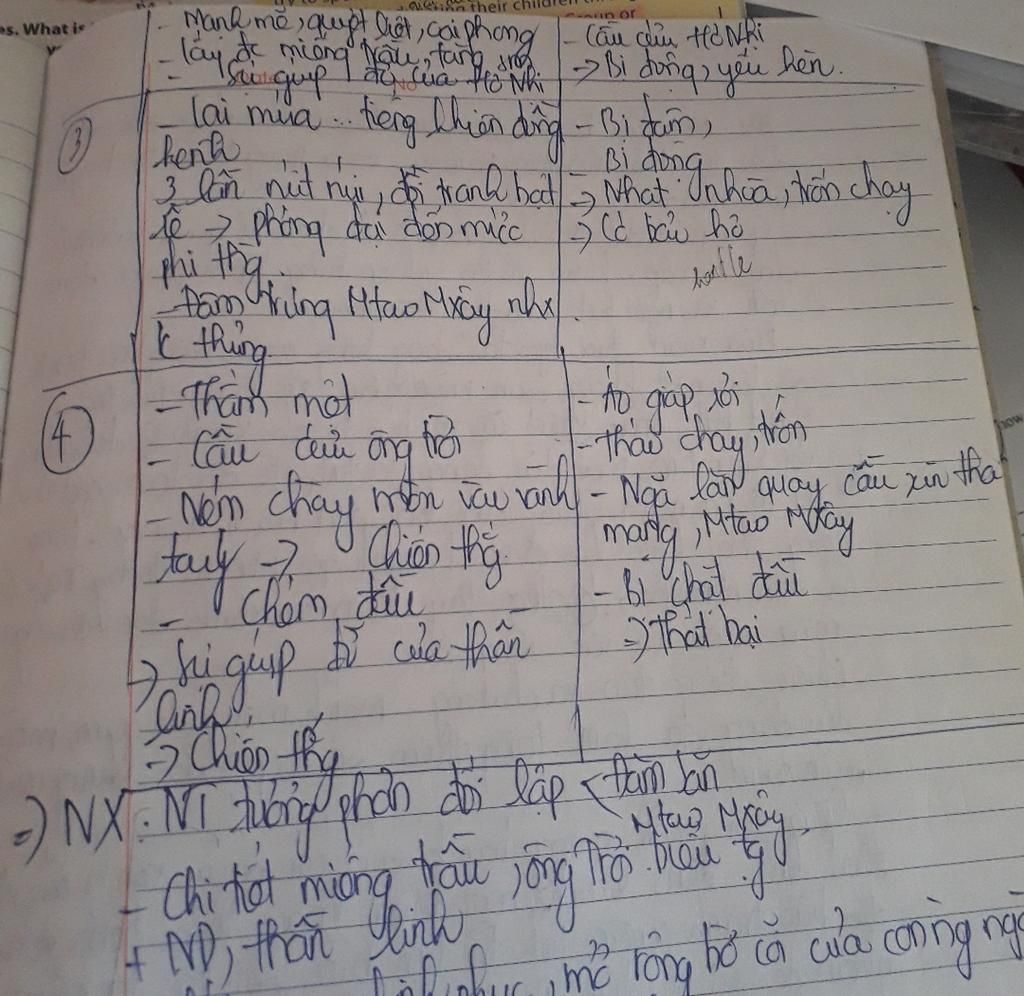 their children
es. What is
- Mạnh mẽ, quyết liệt, oai phong
- lấy đc miếng trầu, tăng
- Sự giúp đỡ của Hơ Nhị
- Cầu cứu Hơ Nhị
→ Bị động, yếu hèn.
③
- lại múa... tiếng khiên đồng
kenh
3 lần nứt núi, đồi tranh bật
rễ → phóng đại đến mức
phi thg.
- đâm trúng Mtao Mxây
k thủng
- Bị đâm,
Bị động
→ Nhạt nhòa, trốn chạy
hustle
④
- Thấm mệt
- Cầu cứu ông trời
- Ném chày mòn vào vành
tai → Chiến thg.
- Chém đầu
→ Sự giúp đỡ của thần
linh
→ Chiến thg
- Áo giáp rơi
- tháo chạy, trốn
- Ngã lăn quay cầu xin tha
mạng, Mtao Mxây
- Bị chặt đầu
⇒ Thất bại
⇒ NX: NT tương phản đối lập < Đăm Săn
Mtao Mxây
- Chi tiết miếng trầu, ông Trời biểu tg
+ ND, thần linh
phục, mở rộng bờ cõi của